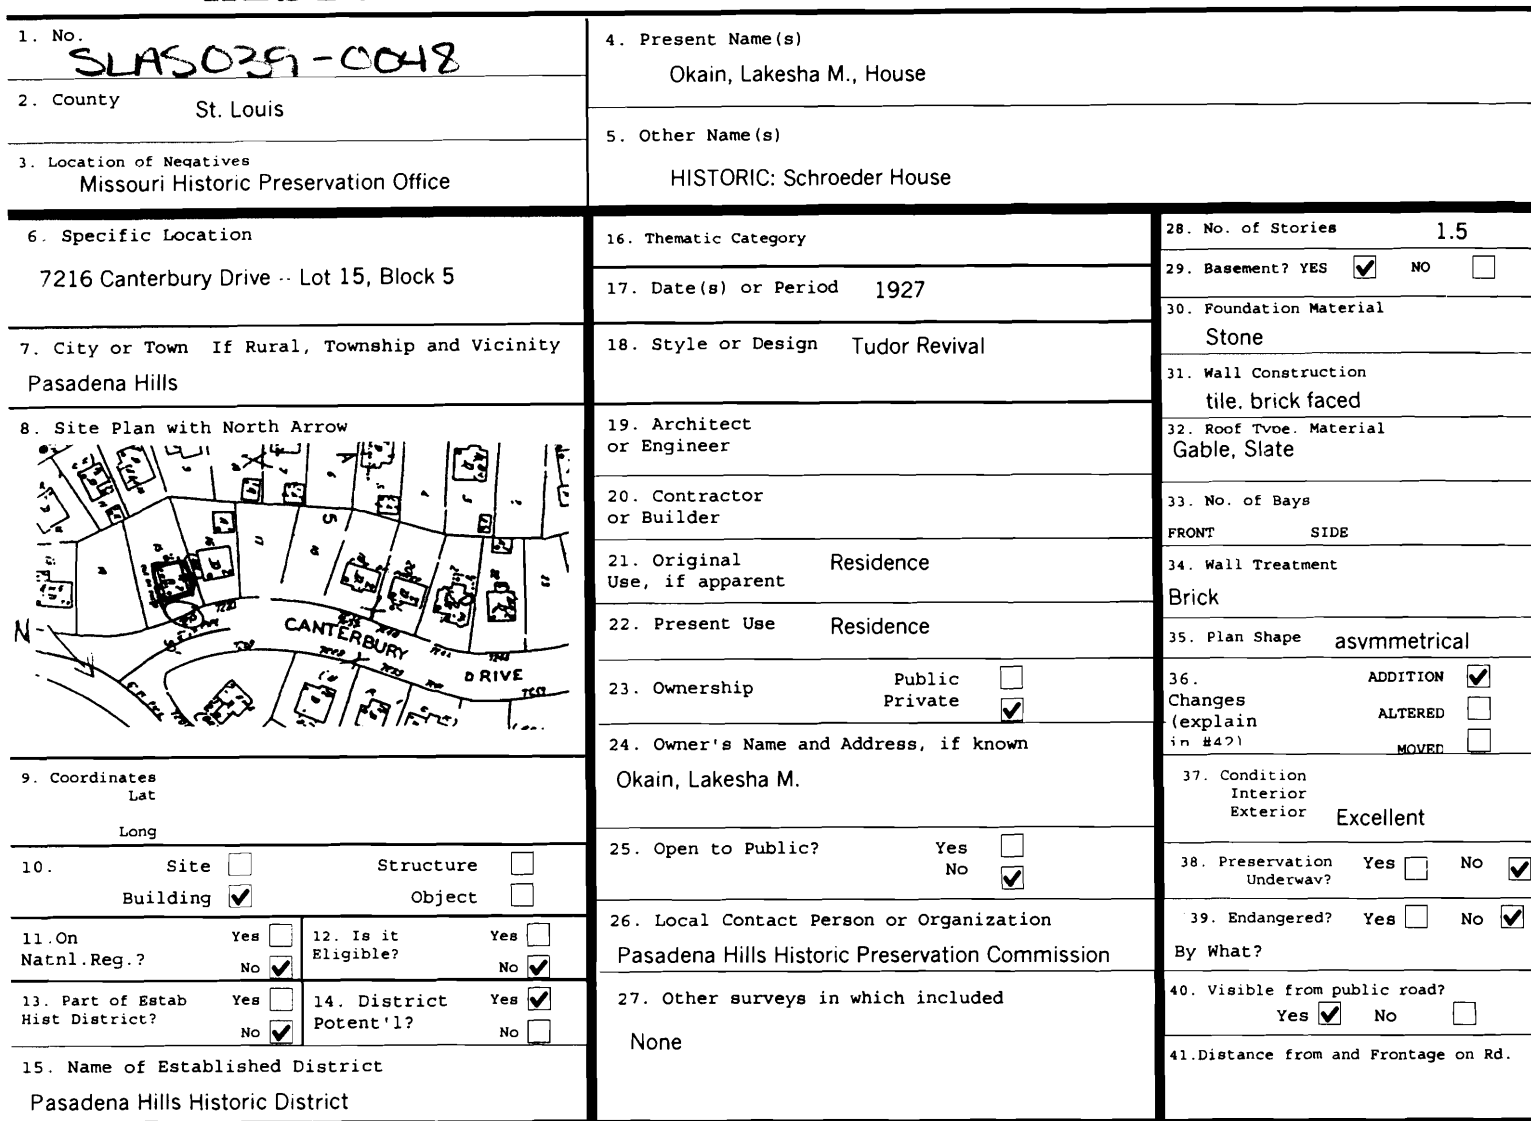 1. No.
SLAS039-0048
2. County St. Louis
3. Location of Negatives
Missouri Historic Preservation Office
4. Present Name(s)
Okain, Lakesha M., House
5. Other Name(s)
HISTORIC: Schroeder House
6. Specific Location
7216 Canterbury Drive -- Lot 15, Block 5
7. City or Town If Rural, Township and Vicinity
Pasadena Hills
8. Site Plan with North Arrow
N
5
CANTERBURY
DRIVE
9. Coordinates
Lat
Long
10. Site Structure
Building ✔ Object
11. On Yes
Natnl.Reg.? No ✔
12. Is it Yes
Eligible? No ✔
13. Part of Estab Yes
Hist District? No ✔
14. District Yes ✔
Potent'l? No
15. Name of Established District
Pasadena Hills Historic District
16. Thematic Category
17. Date(s) or Period 1927
18. Style or Design Tudor Revival
19. Architect
or Engineer
20. Contractor
or Builder
21. Original Residence
Use, if apparent
22. Present Use Residence
23. Ownership Public
Private ✔
24. Owner's Name and Address, if known
Okain, Lakesha M.
25. Open to Public? Yes
No ✔
26. Local Contact Person or Organization
Pasadena Hills Historic Preservation Commission
27. Other surveys in which included
None
28. No. of Stories 1.5
29. Basement? YES ✔ NO
30. Foundation Material
Stone
31. Wall Construction
tile. brick faced
32. Roof Type. Material
Gable, Slate
33. No. of Bays
FRONT SIDE
34. Wall Treatment
Brick
35. Plan Shape asymmetrical
36. ADDITION ✔
Changes
(explain ALTERED
in #42) MOVED
37. Condition
Interior
Exterior Excellent
38. Preservation Yes No ✔
Underway?
39. Endangered? Yes No ✔
By What?
40. Visible from public road?
Yes ✔ No
41.Distance from and Frontage on Rd.